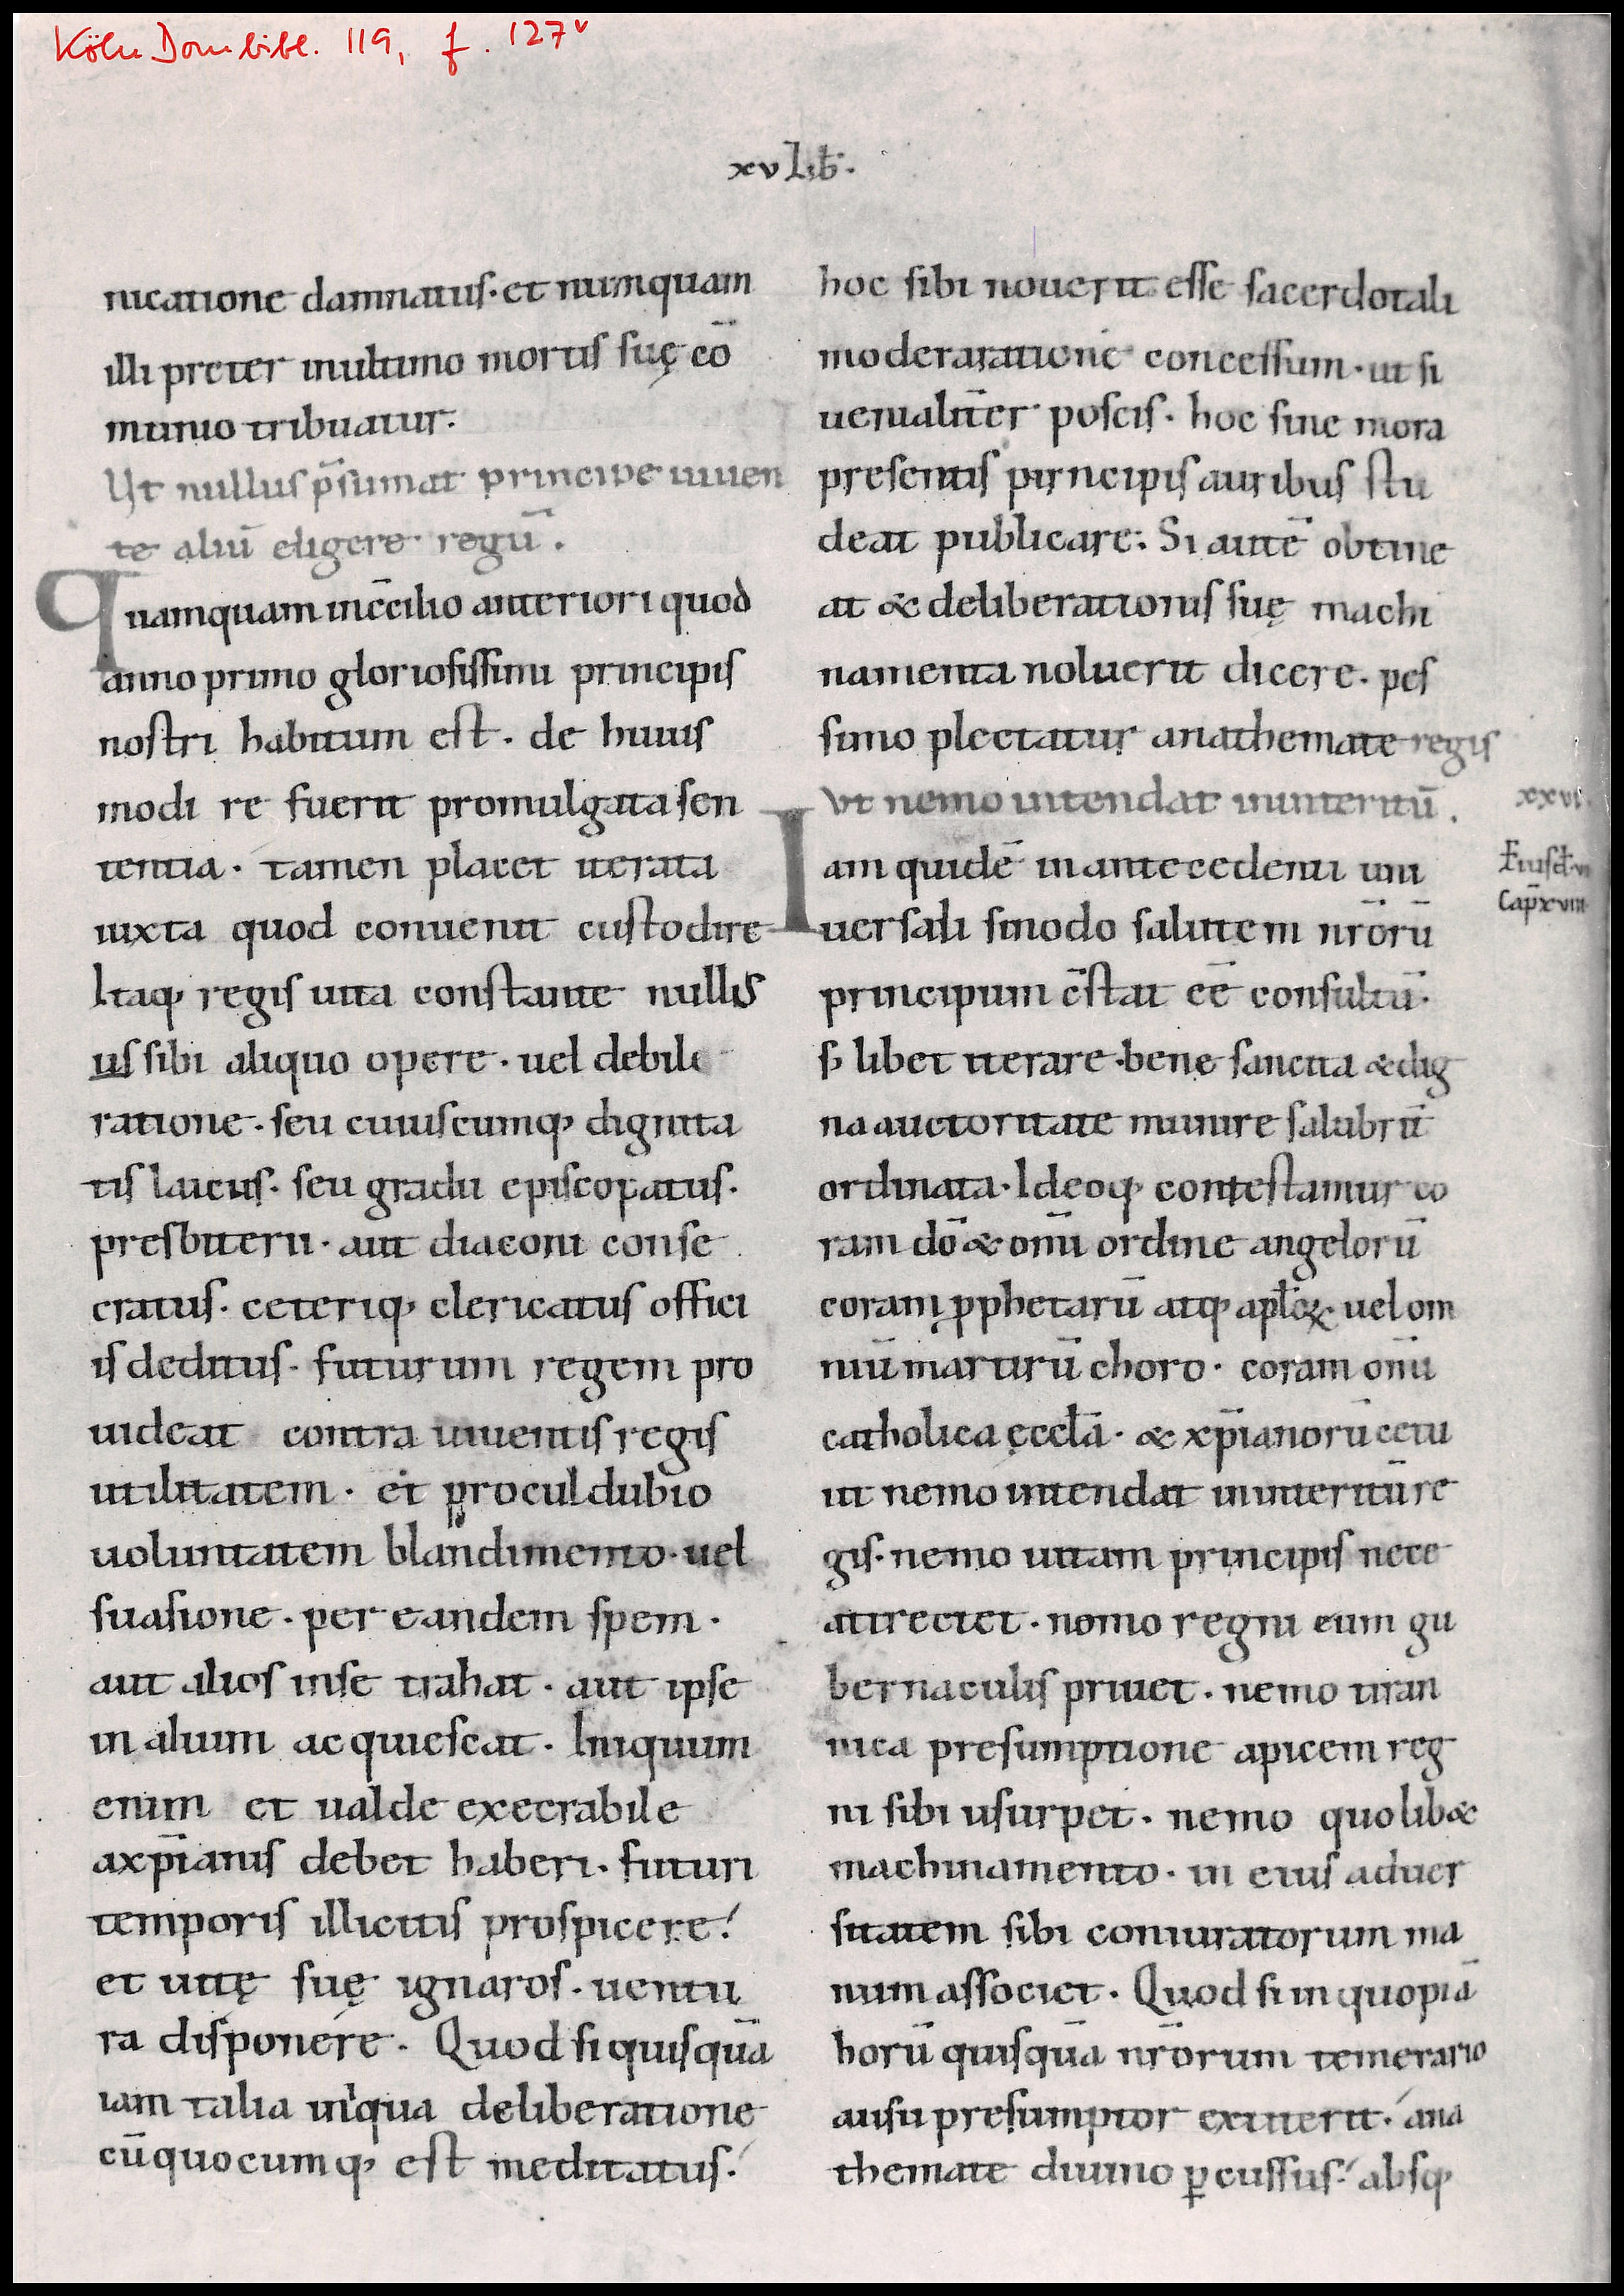 Köln Dombibl. 119, f. 127v
xv Lib̄.
nicatione damnatus. et numquam
illi preter inultimo mortis suę cō
munio tribuatur.
Ut nullus p̄sumat principe uiuen
te aliū eligere regū.
Quamquam inc̄cilio anteriori quod
anno primo gloriosissimi principis
nostri habitum est. de huius
modi re fuerit promulgata sen
tentia. tamen placet iterata
iuxta quod conuenit custodire
Itaq; regis uita constante nullis
us sibi aliquo opere. uel debile
ratione. seu cuiuscumq; dignita
tis laicus. seu gradu episcopatus.
presbiterii. aut diaconi conse
cratus. ceteriq; clericatus offici
is deditus. futurum regem pro
uideat contra uiuentis regis
utilitatem. et proculdubio
uoluntatem blandimento. uel
suasione. per eandem spem.
aut alios inse trahat. aut ipse
in alium acquiescat. Iniquum
enim et ualde execrabile
axp̄ianis debet haberi. futuri
temporis illicitis prospicere.
et uitę suę ignaros. uentu
ra disponere. Quod si quisquā
iam talia iniqua deliberatione
cū quocumq; est meditatus.
hoc sibi nouerit esse sacerdotali
moderaratione concessum. ut si
uenialit̄er poscis. hoc sine mora
presentis pirncipis auribus stu
deat publicare. Si autē obtine
at & deliberationis suę machi
namenta noluerit dicere. pes
simo plectatur anathemate regis
Vt nemo intendat ininteritū.
xxvi.
Iam quidē in antecedenti uni
Eiusd. vi
uersali sinodo salutem nr̄orū
Cap̄ xviii
principum c̄stat eē consultū.
s; libet iterare. bene sancita & dig
na auctoritate munire salubrit̄
ordinata. Ideoq; contestamur co
ram dō & om̄i ordine angelorū
coram p̱phetarū atq; apl̄oꝝ uel om
niū martirū choro. coram om̄i
catholica ęccl̄a. & xp̄ianorū cetu
ut nemo intendat ininteritū re
gis. nemo uitam principis nece
attrectet. nomo regni eum gu
bernaculis priuet. nemo tiran
nica presumptione apicem reg
ni sibi usurpet. nemo quolib&
machinamento. in eius aduer
sitatem sibi coniuratorum ma
num associet. Quod si in quopiā
horū quisquā nr̄orum temerario
ausu presumptor extiterit. ana
themate diuino ꝑcussus. absq;